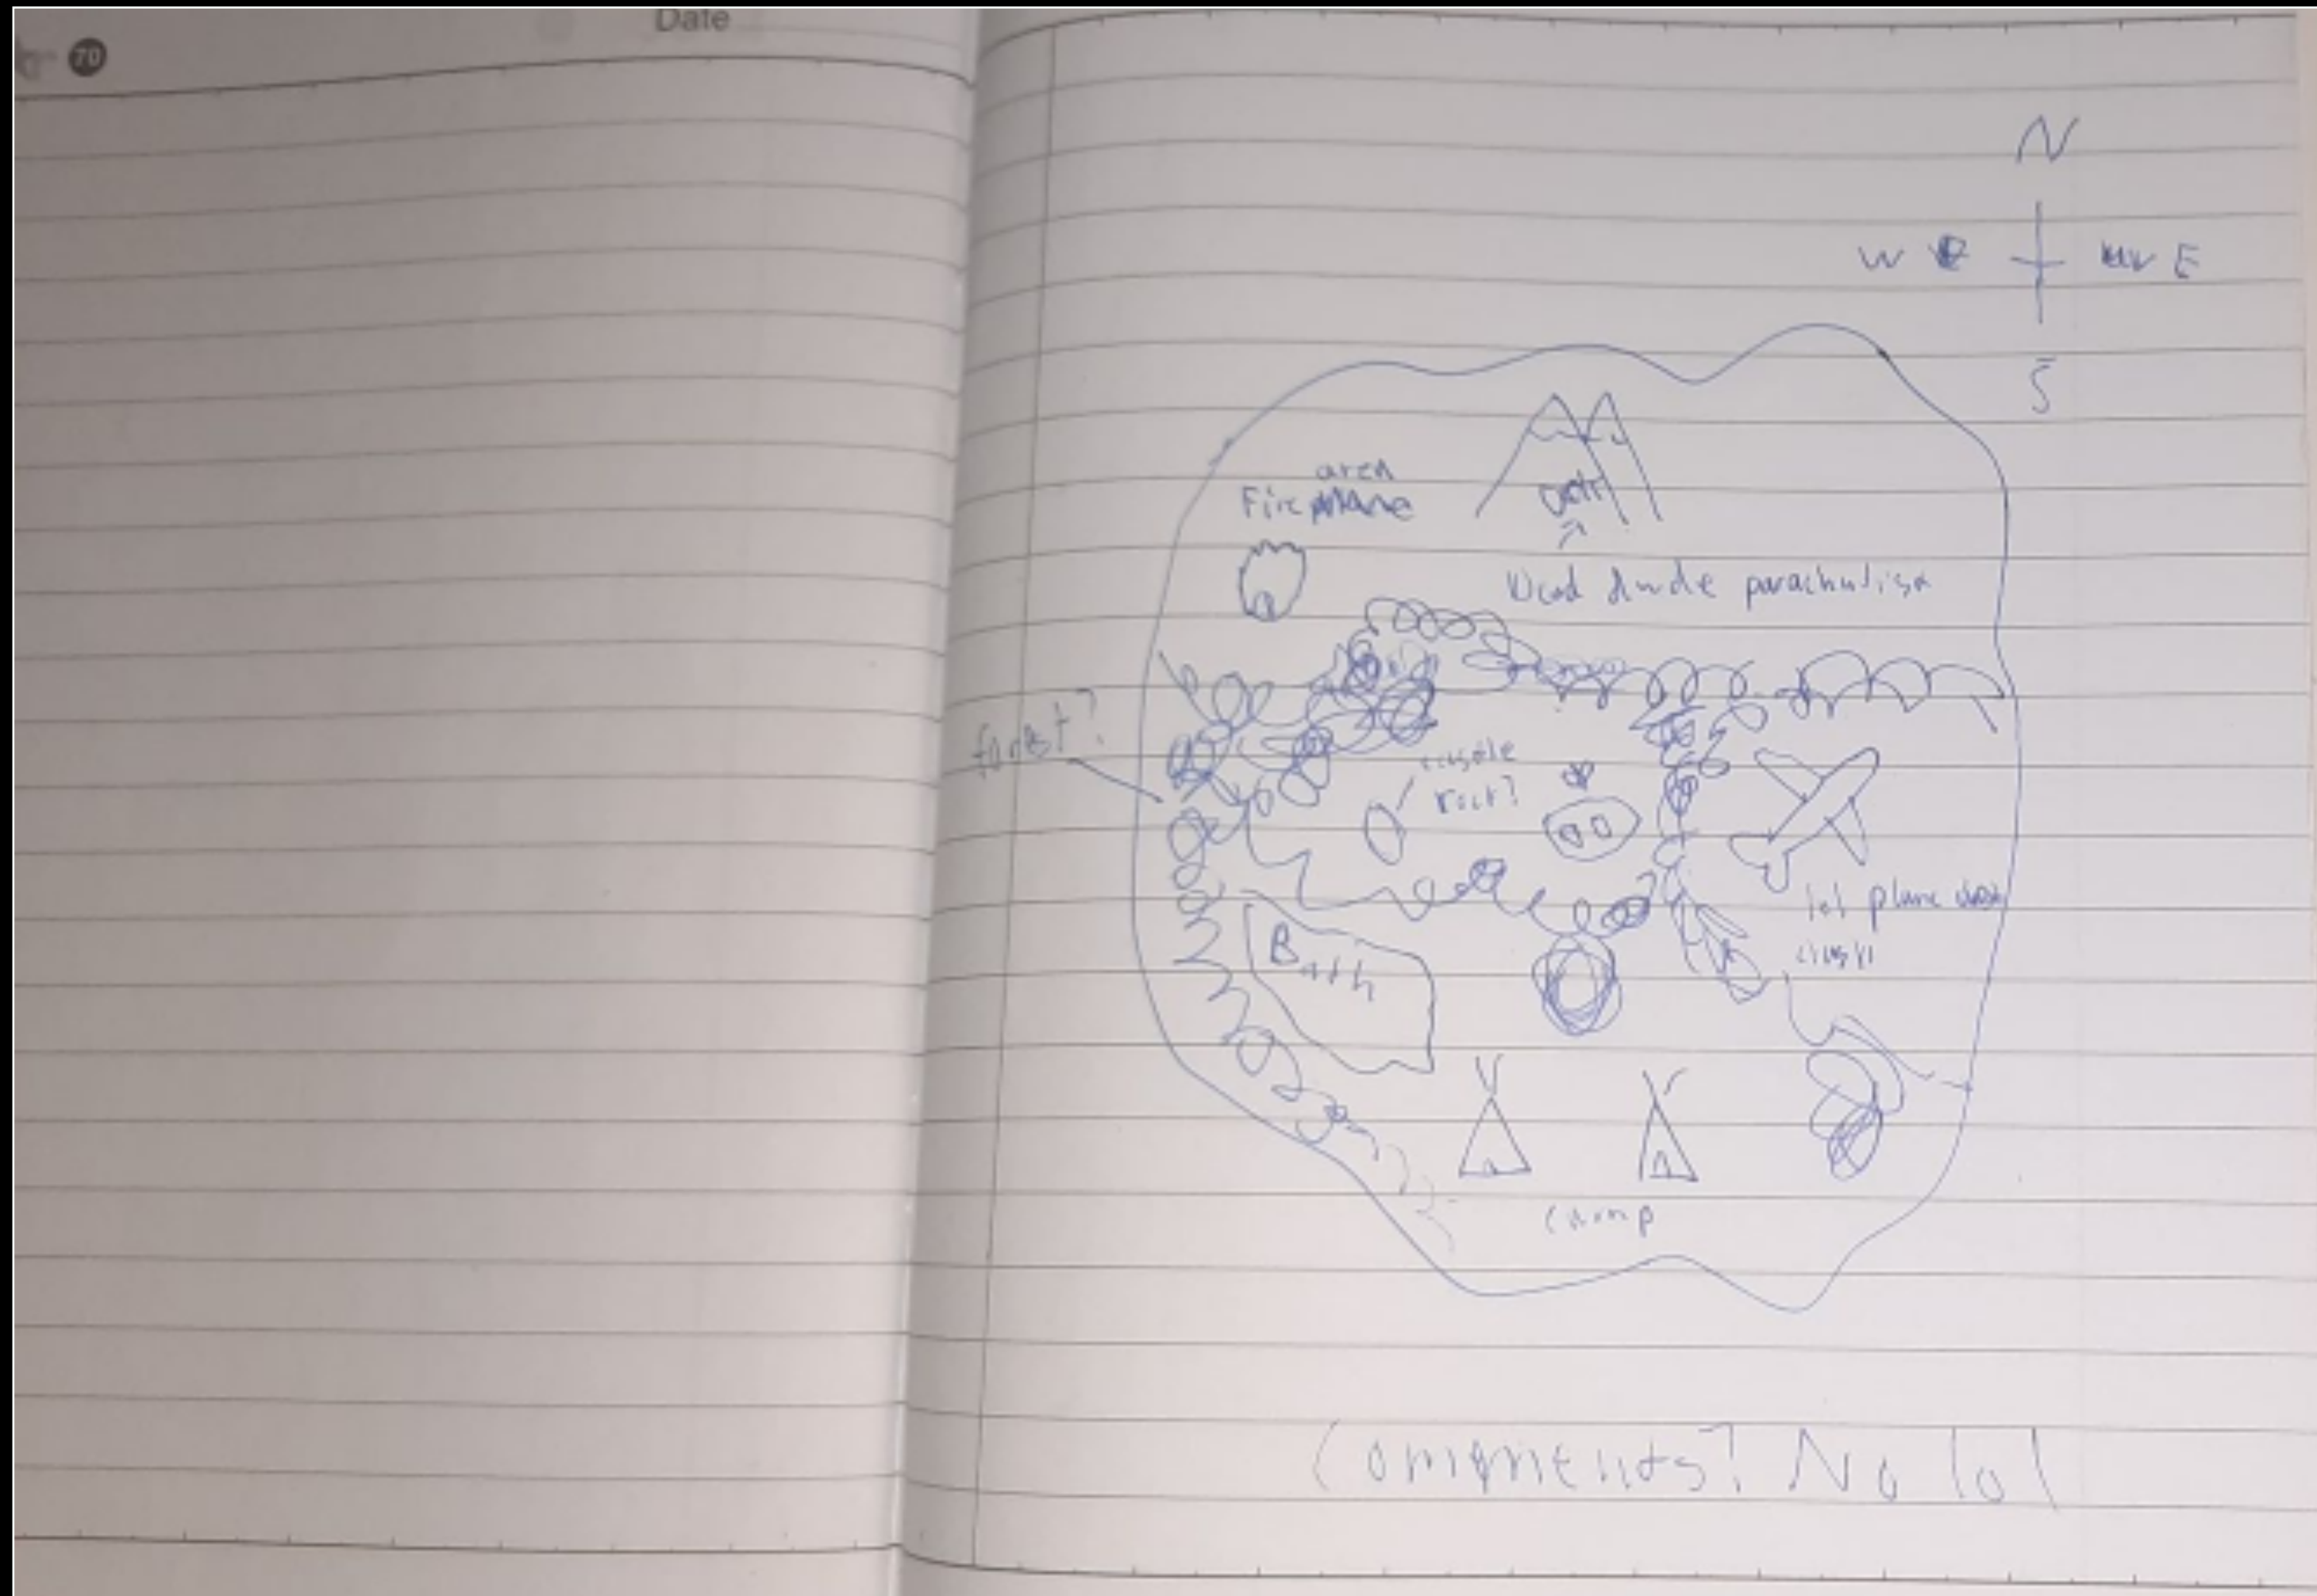 Date
70
N
W E
S
area
Fire
Dead dude parachutist
forest?
castle
rock?
plane
crash
Bath
camp
Comments? No lol